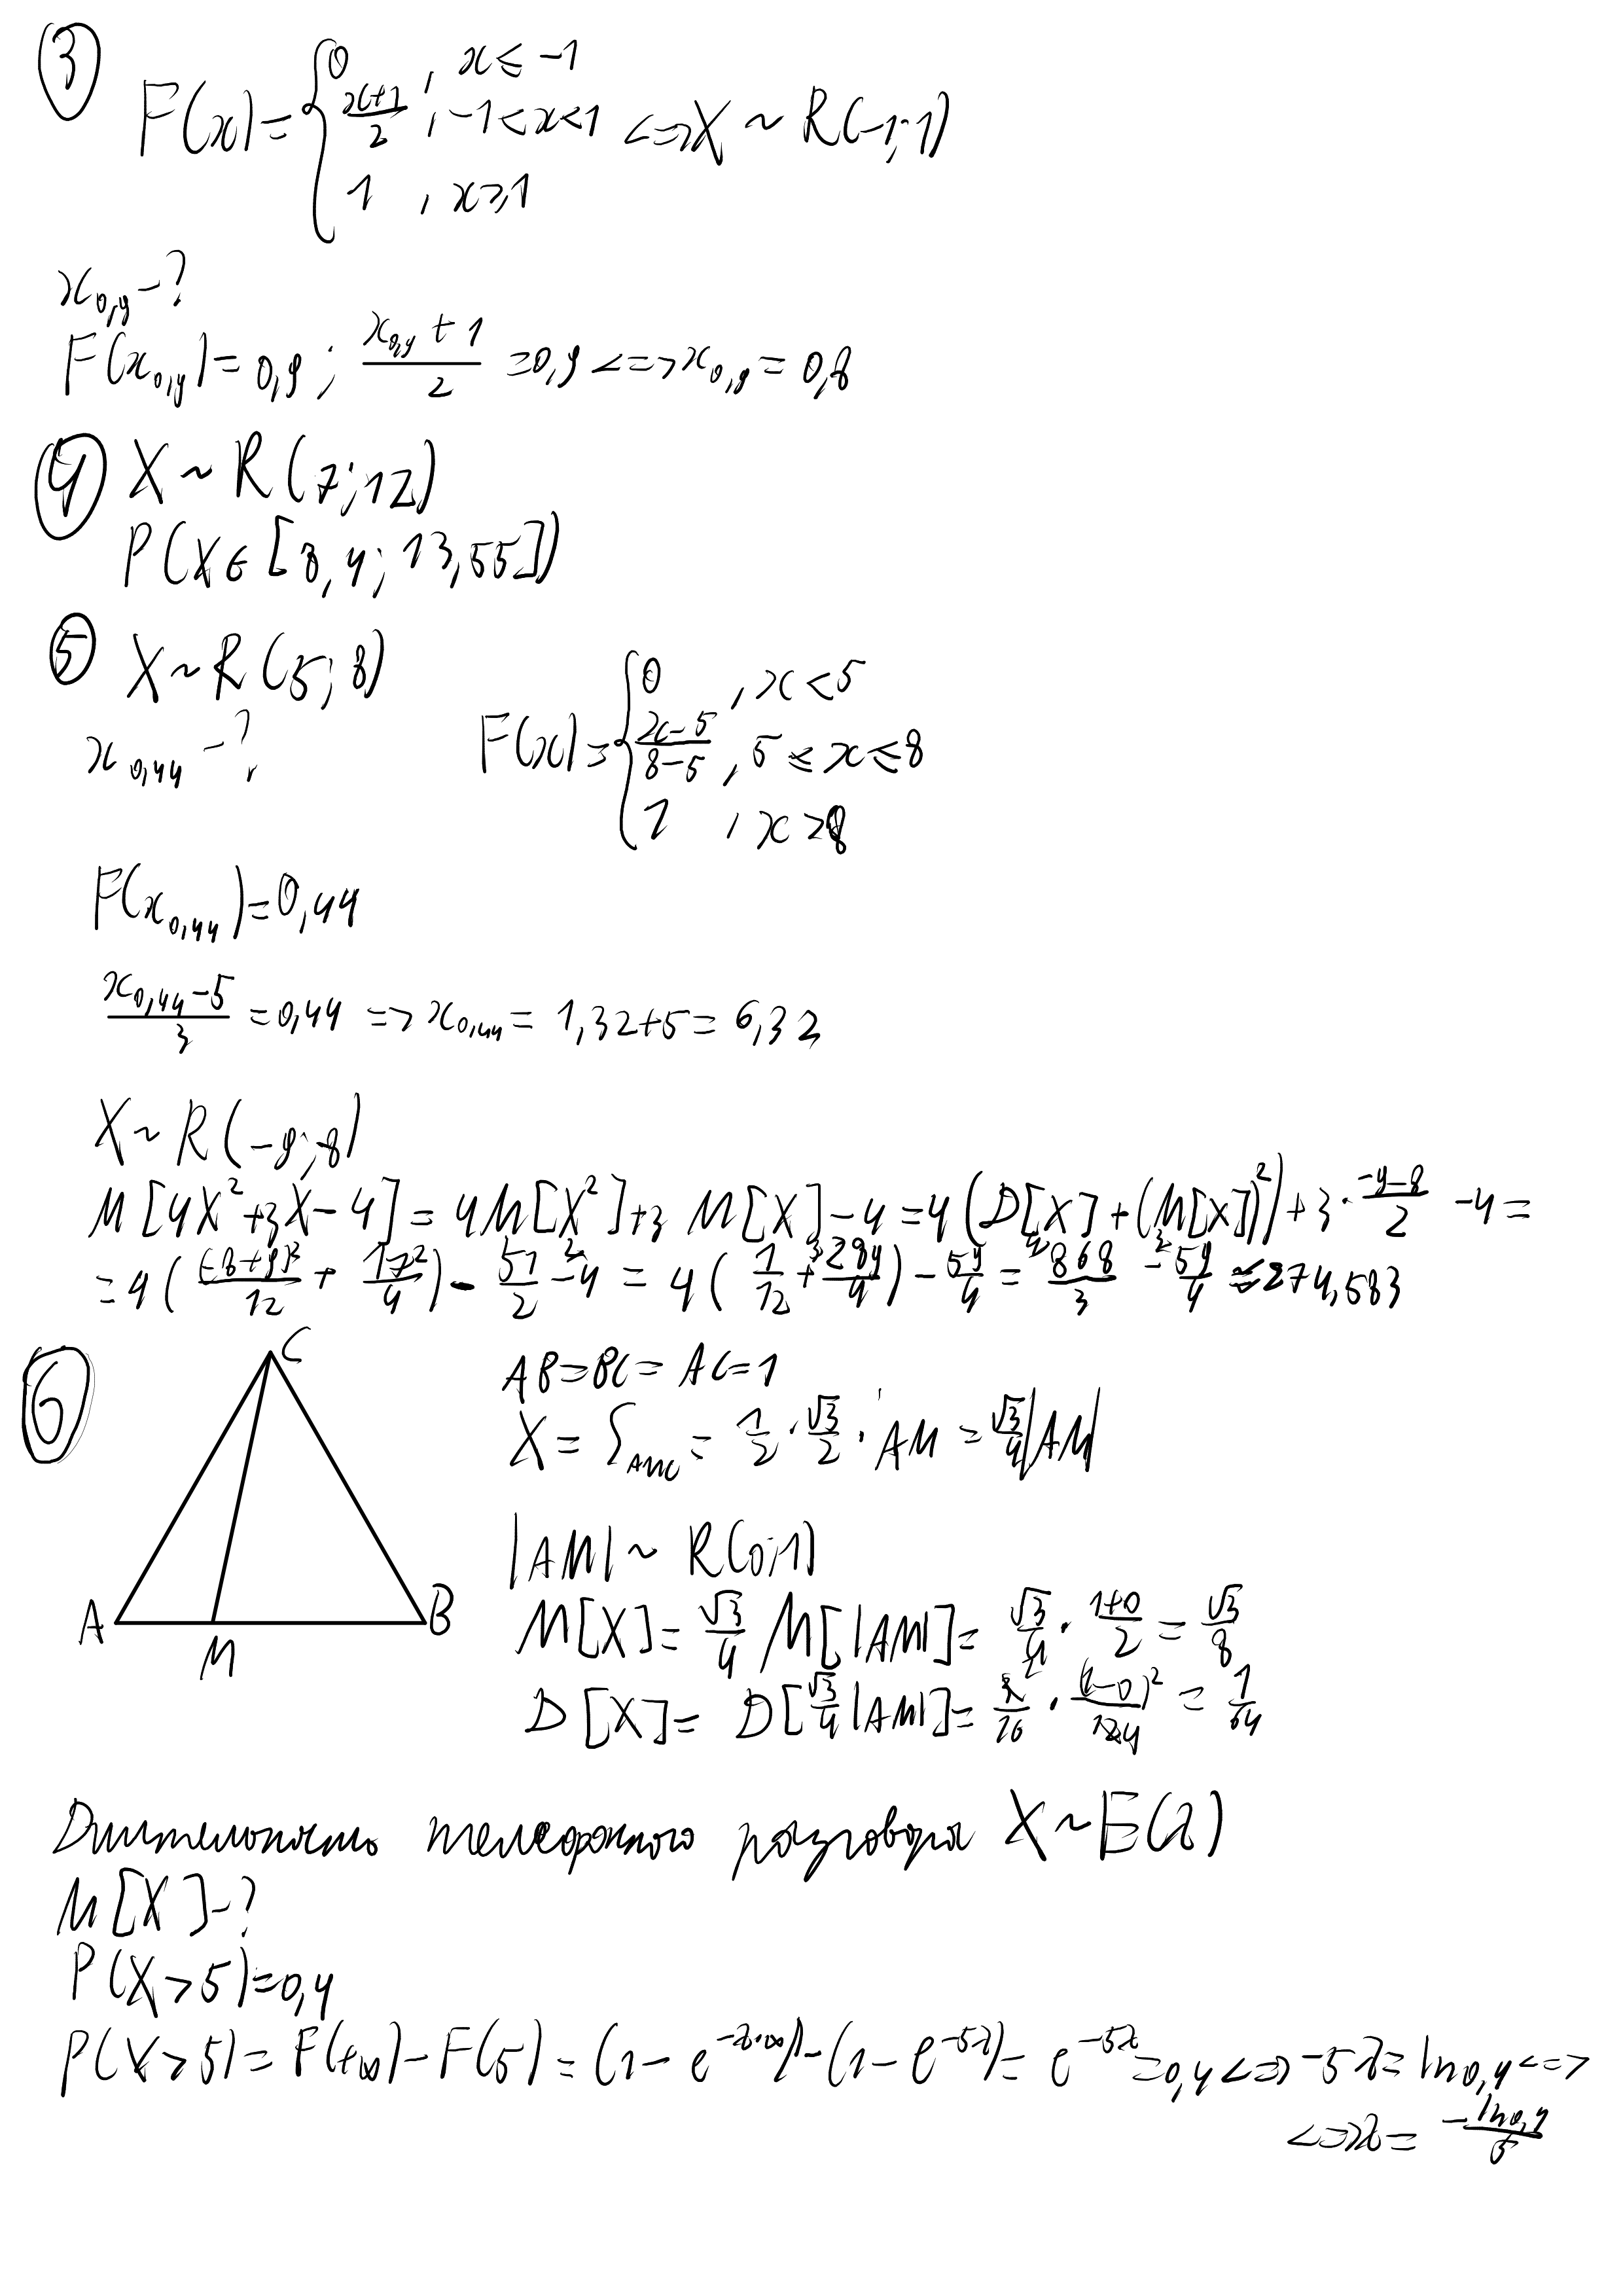 ③ F(x) = { 0 , x ≤ -1
(x+1)/2 , -1 < x < 1 <=> X ~ R(-1; 1)
1 , x ≥ 1
x_{0,9} - ?
F(x_{0,9}) = 0,9 ; (x_{0,9} + 1)/2 = 0,9 <=> x_{0,9} = 0,8
④ X ~ R(7; 12)
P(X ∈ [8,4; 13,55])
⑤ X ~ R(5; 8)
x_{0,44} - ?
F(x) = { 0 , x < 5
(x-5)/(8-5) , 5 ≤ x ≤ 8
1 , x > 8
F(x_{0,44}) = 0,44
(x_{0,44} - 5)/3 = 0,44 => x_{0,44} = 1,32 + 5 = 6,32
X ~ R(-9; -8)
M[4X² + 3X - 4] = 4M[X²] + 3 M[X] - 4 = 4(D[X] + (M[X])²) + 3 · (-9-8)/2 - 4 =
= 4((-8+9)²/12 + 17²/4) - 51/2 - 4 = 4(1/12 + 289/4) - 59/4 = 868/3 - 59/4 ≈ 274,583
⑥
C
A
B
M
AB = BC = AC = 1
X = S_{AMC} = 1/2 · √3/2 · AM = √3/4 |AM|
|AM| ~ R(0; 1)
M[X] = √3/4 M[|AM|] = √3/4 · (1+0)/2 = √3/8
D[X] = D[√3/4 |AM|] = 3/16 · (1-0)²/12 4 = 1/64
Длительность телефонного разговора X ~ E(λ)
M[X] - ?
P(X > 5) = 0,4
P(X > 5) = F(+∞) - F(5) = (1 - e^{-λ·∞}) - (1 - e^{-5λ}) = e^{-5λ} = 0,4 <=> -5λ = ln 0,4 <=>
<=> λ = -ln 0,4/5